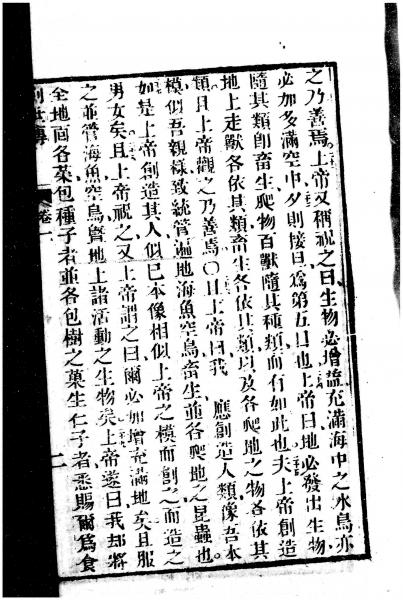 之乃善焉上帝又稱祝之曰生物必增益充滿海中之水鳥亦
必加多滿空中夕則接日爲第五日也上帝曰地必發出生物
隨其類卽畜生爬物百獸隨其種類而有如此也夫上帝創造
地上走獸各依其類畜生各依其類以及各爬地之物各依其
類且上帝觀之乃善焉〇且上帝曰我應創造人類像吾本
模似吾親樣致統管遍地海魚空鳥畜生並各爬地之昆蟲也
如是上帝創造其人似已本像相似上帝之模而創之而造之
男女矣且上帝祝之又上帝謂之曰爾必如增充滿地矣且服
之並管海魚空鳥曁地上諸活動之生物矣上帝遂曰我却將
全地面各菜包種子者並各包樹之菓生仁子者悉賜爾爲食
創世傳
卷一
二